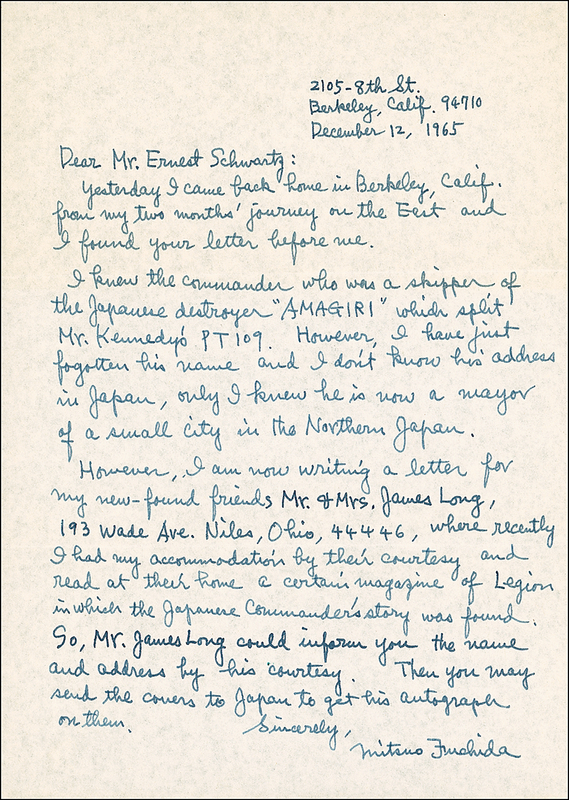 2105-8th St.
Berkeley, Calif. 94710
December 12, 1965
Dear Mr. Ernest Schwartz:
Yesterday I came back home in Berkeley, Calif.
from my two months' journey on the East and
I found your letter before me.
I knew the commander who was a skipper of
the Japanese destroyer "AMAGIRI" which split
Mr. Kennedy's PT 109. However, I have just
fogotten his name and I don't know his address
in Japan, only I knew he is now a mayor
of a small city in the Northern Japan.
However, I am now writing a letter for
my new-found friends Mr. & Mrs. James Long,
193 Wade Ave. Niles, Ohio, 44446, where recently
I had my accommodation by their courtesy and
read at their home a certain magazine of Legion
in which the Japanese Commander's story was found.
So, Mr. James Long could inform you the name
and address by his courtesy. Then you may
send the covers to Japan to get his autograph
on them. Sincerely,
Mitsuo Fuchida